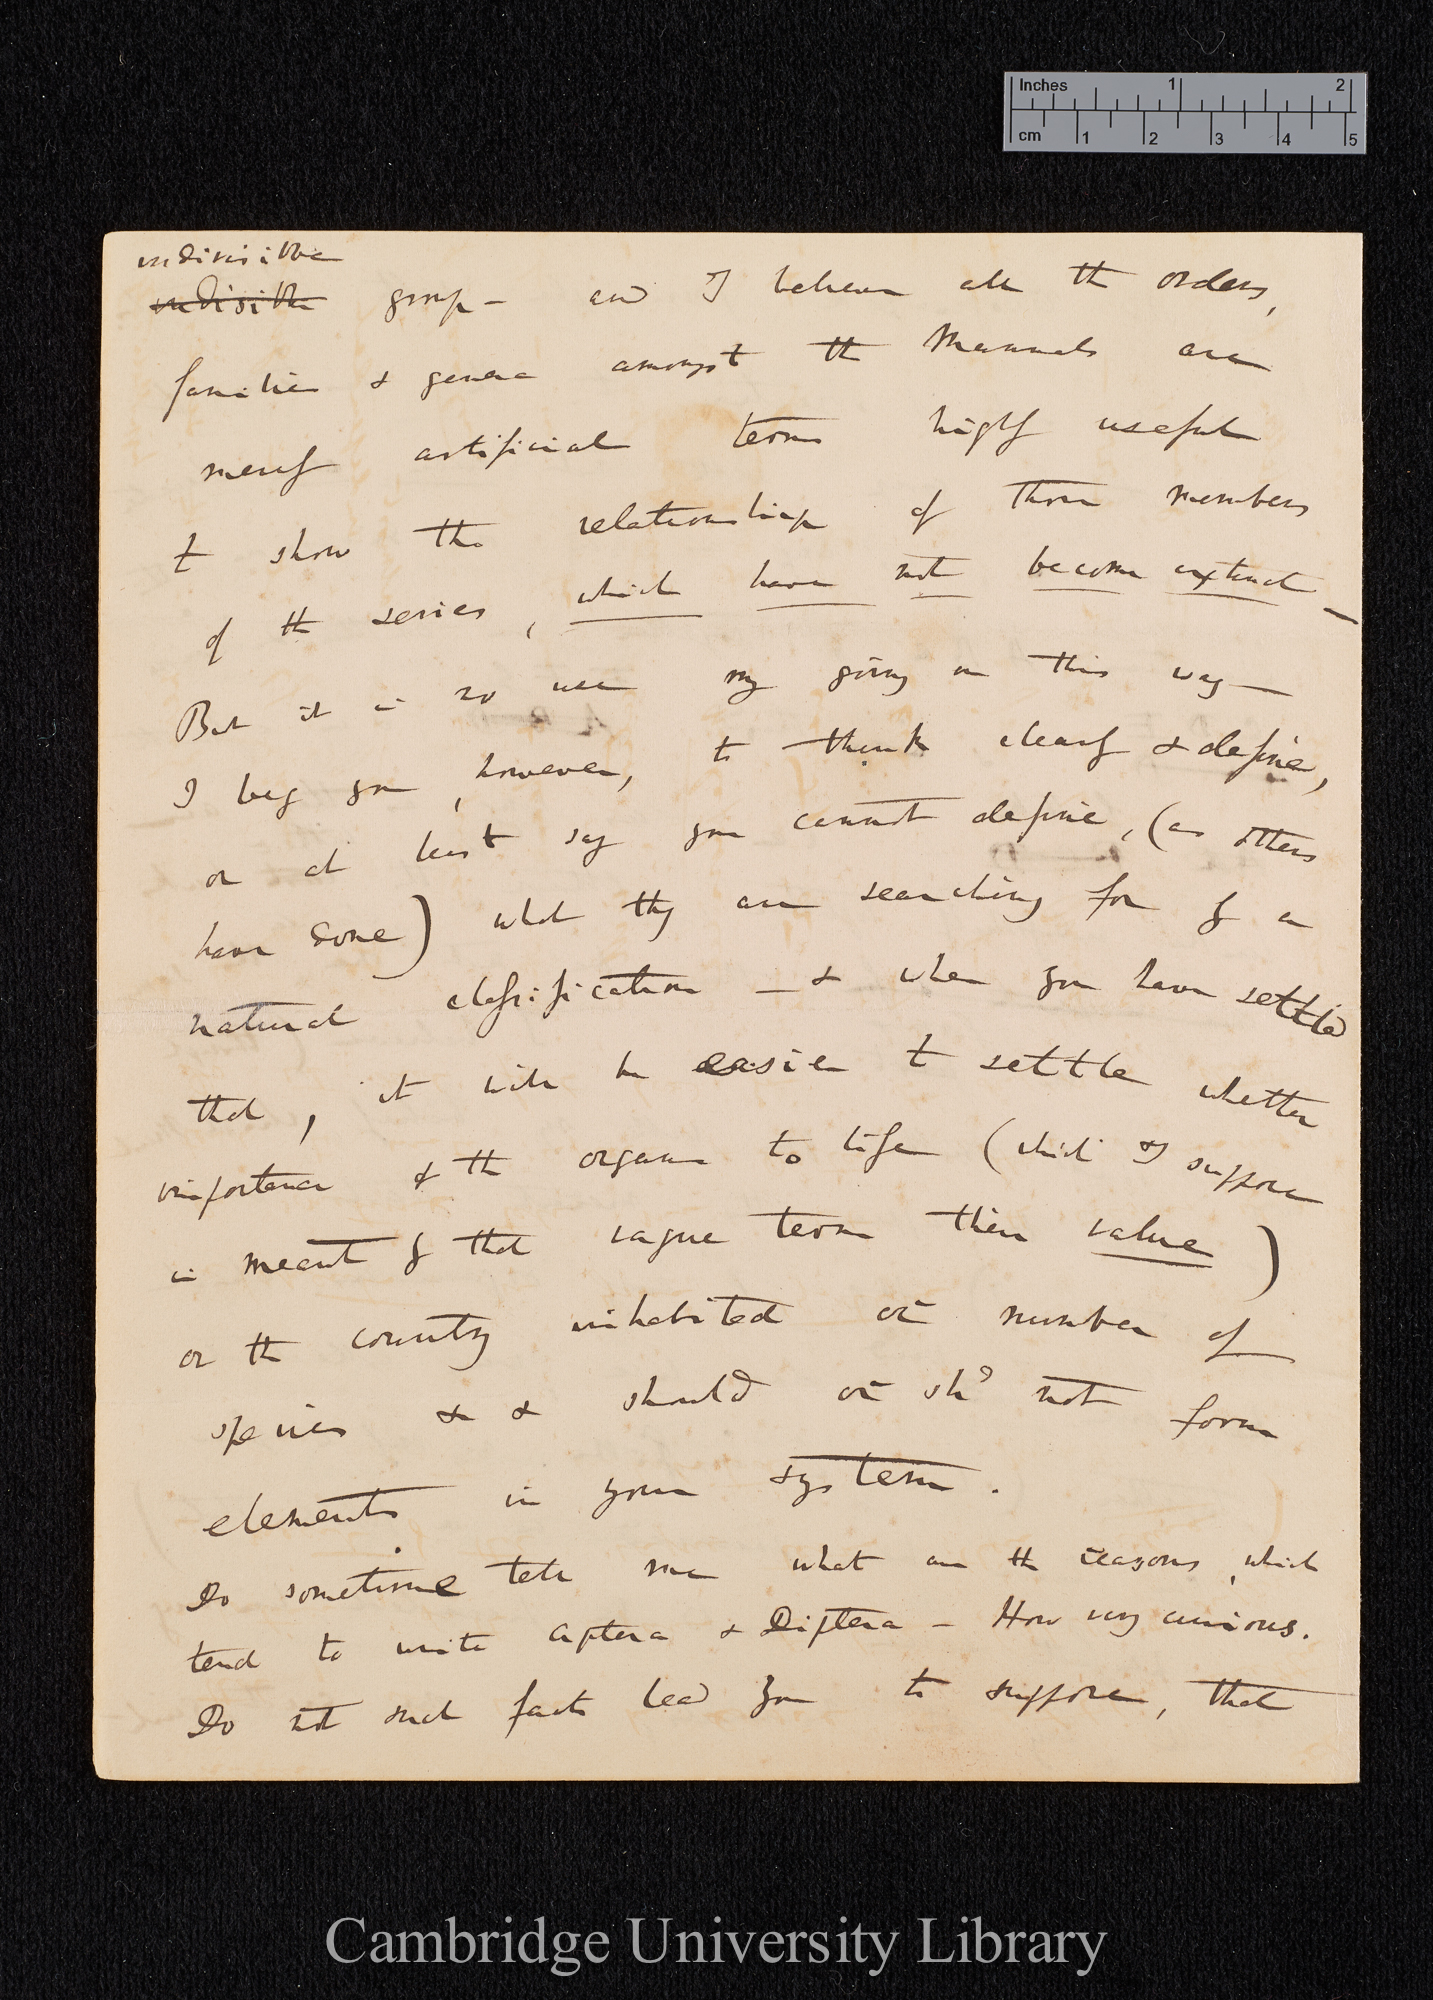 Inches 1 2
cm 1 2 3 4 5
indivisible
indisible group — and I believe all the orders,
families & genera amongst the Mammals are
merely artificial terms highly useful
to show the relationship of those members
of the series, which have not become extinct —
But it is no use my going on this way —
I beg you, however, to think clearly & define,
or at least say you cannot define, (as others
have done) what they are searching for by a
natural classification — & when you have settled
that, it will be easier to settle whether
importance of the organs to life (which I suppose
is meant by that vague term their value)
or the country inhabited or number of
species &c & should or shd not form
elements in your system.
Do sometime tell me what are the reasons, which
tend to unite Aptera & Diptera — How very curious.
Do not such facts lead you to suppose, that
Cambridge University Library